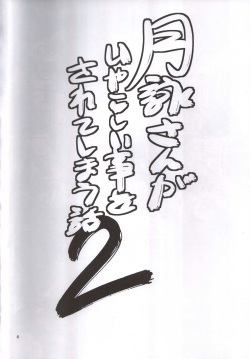 月詠さんが
いやらしい事を
されてしまう話
2